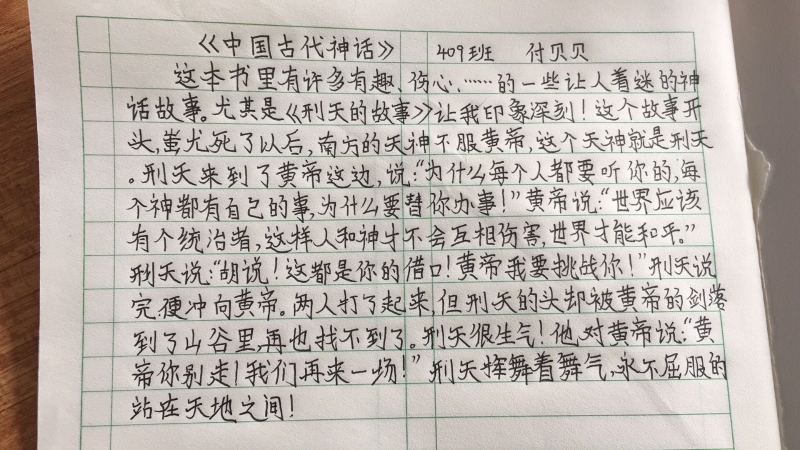 《中国古代神话》 409班 付贝贝
这本书里有许多有趣、伤心、……的一些让人着迷的神
话故事。尤其是《刑天的故事》让我印象深刻！这个故事开
头,蚩尤死了以后,南方的天神不服黄帝,这个天神就是刑天
。刑天来到了黄帝这边,说:“为什么每个人都要听你的,每
个神都有自己的事,为什么要替你办事!”黄帝说:“世界应该
有个统治者,这样人和神才不会互相伤害,世界才能和平。”
刑天说:“胡说!这都是你的借口!黄帝我要挑战你!”刑天说
完,便冲向黄帝。两人打了起来,但刑天的头却被黄帝的剑落
到了山谷里,再也找不到了。刑天很生气!他,对黄帝说:“黄
帝你别走!我们再来一场!”刑天挥舞着舞气,永不屈服的
站在天地之间!